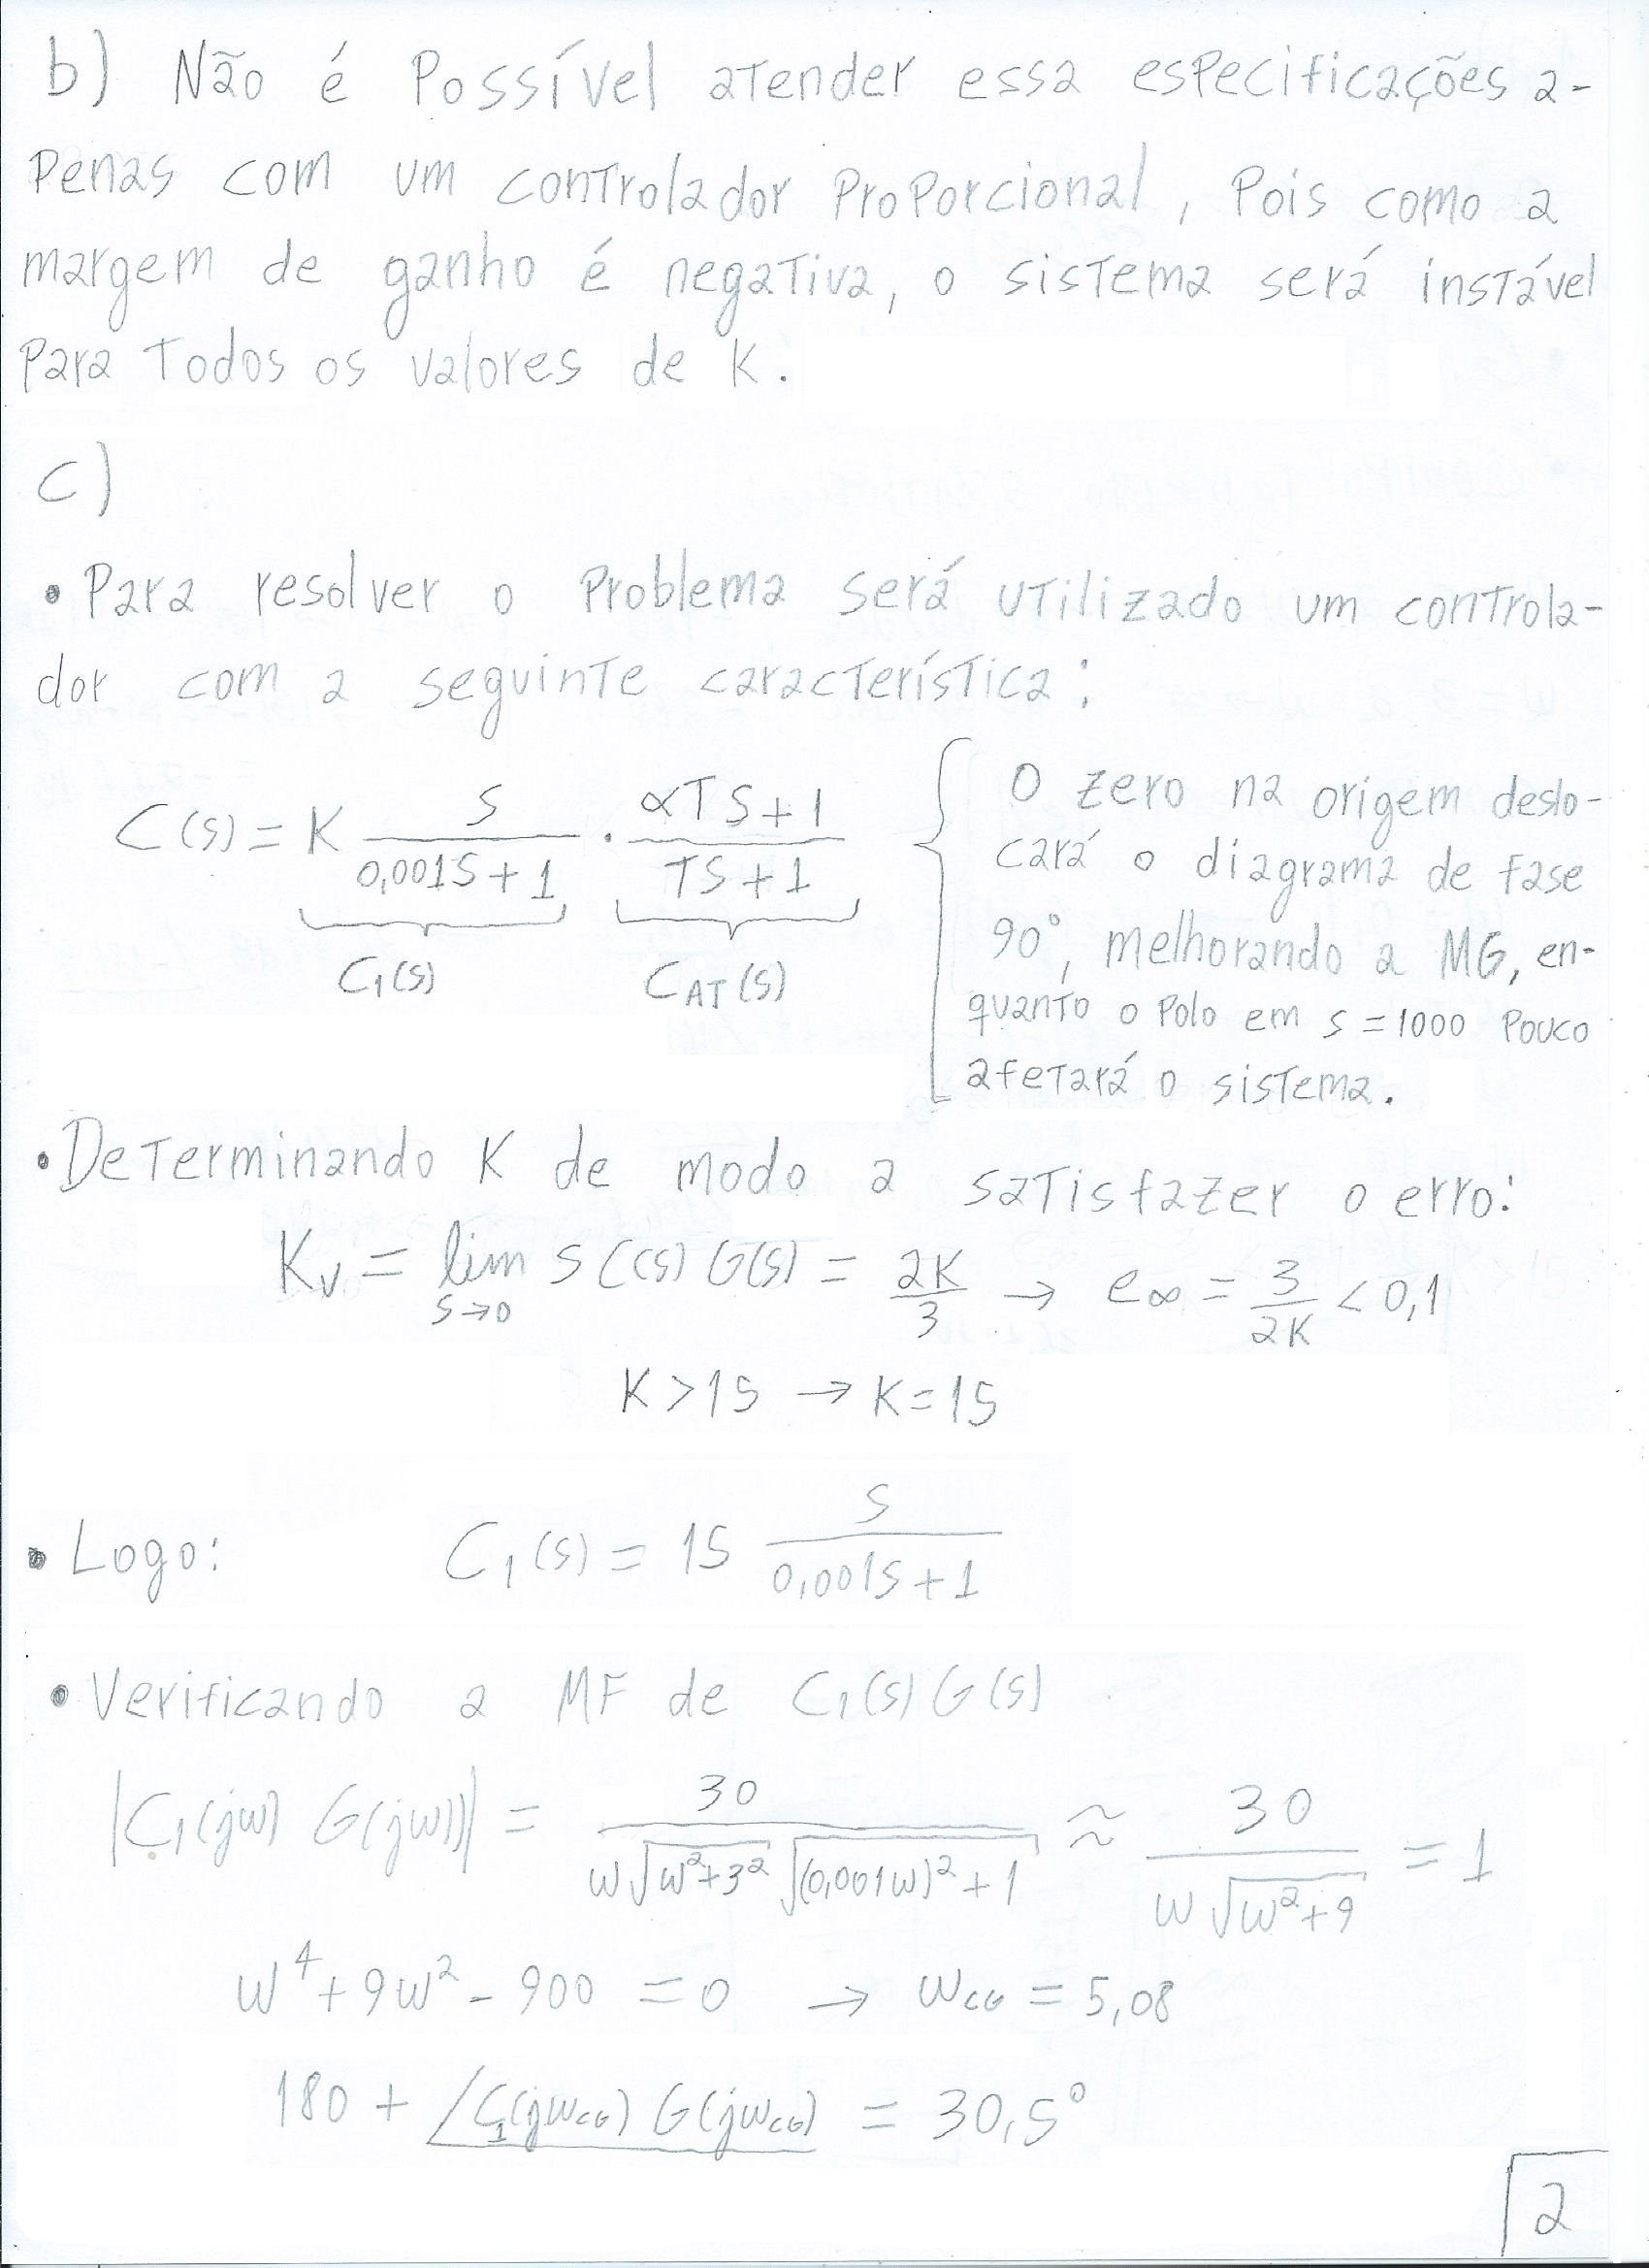 b) Não é Possível atender essa especificações a-
Penas com um controlador Proporcional, Pois como a
margem de ganho é negativa, o sistema será instável
Para Todos os valores de K.
c)
• Para resolver o Problema será utilizado um controla-
dor com a seguinte característica:
C(s) = K s / (0,001s + 1) . (αTs + 1) / (Ts + 1)
C₁(s) C_AT(s)
{ O zero na origem deslo-
cará o diagrama de fase
90°, melhorando a MG, en-
quanto o Polo em s = 1000 Pouco
afetará o sistema.
• Determinando K de modo a satisfazer o erro:
Kv = lim s→0 s C(s) G(s) = 2K/3 → e∞ = 3/2K < 0,1
K > 15 → K = 15
• Logo: C₁(s) = 15 s / (0,001s + 1)
• Verificando a MF de C₁(s) G(s)
|C₁(jω) G(jω))| = 30 / (ω√(ω²+3²) √((0,001ω)²+1)) ≈ 30 / (ω√(ω²+9)) = 1
ω⁴ + 9ω² - 900 = 0 → ω_CG = 5,08
180 + ∠C₁(jω_CG) G(jω_CG) = 30,5°
2